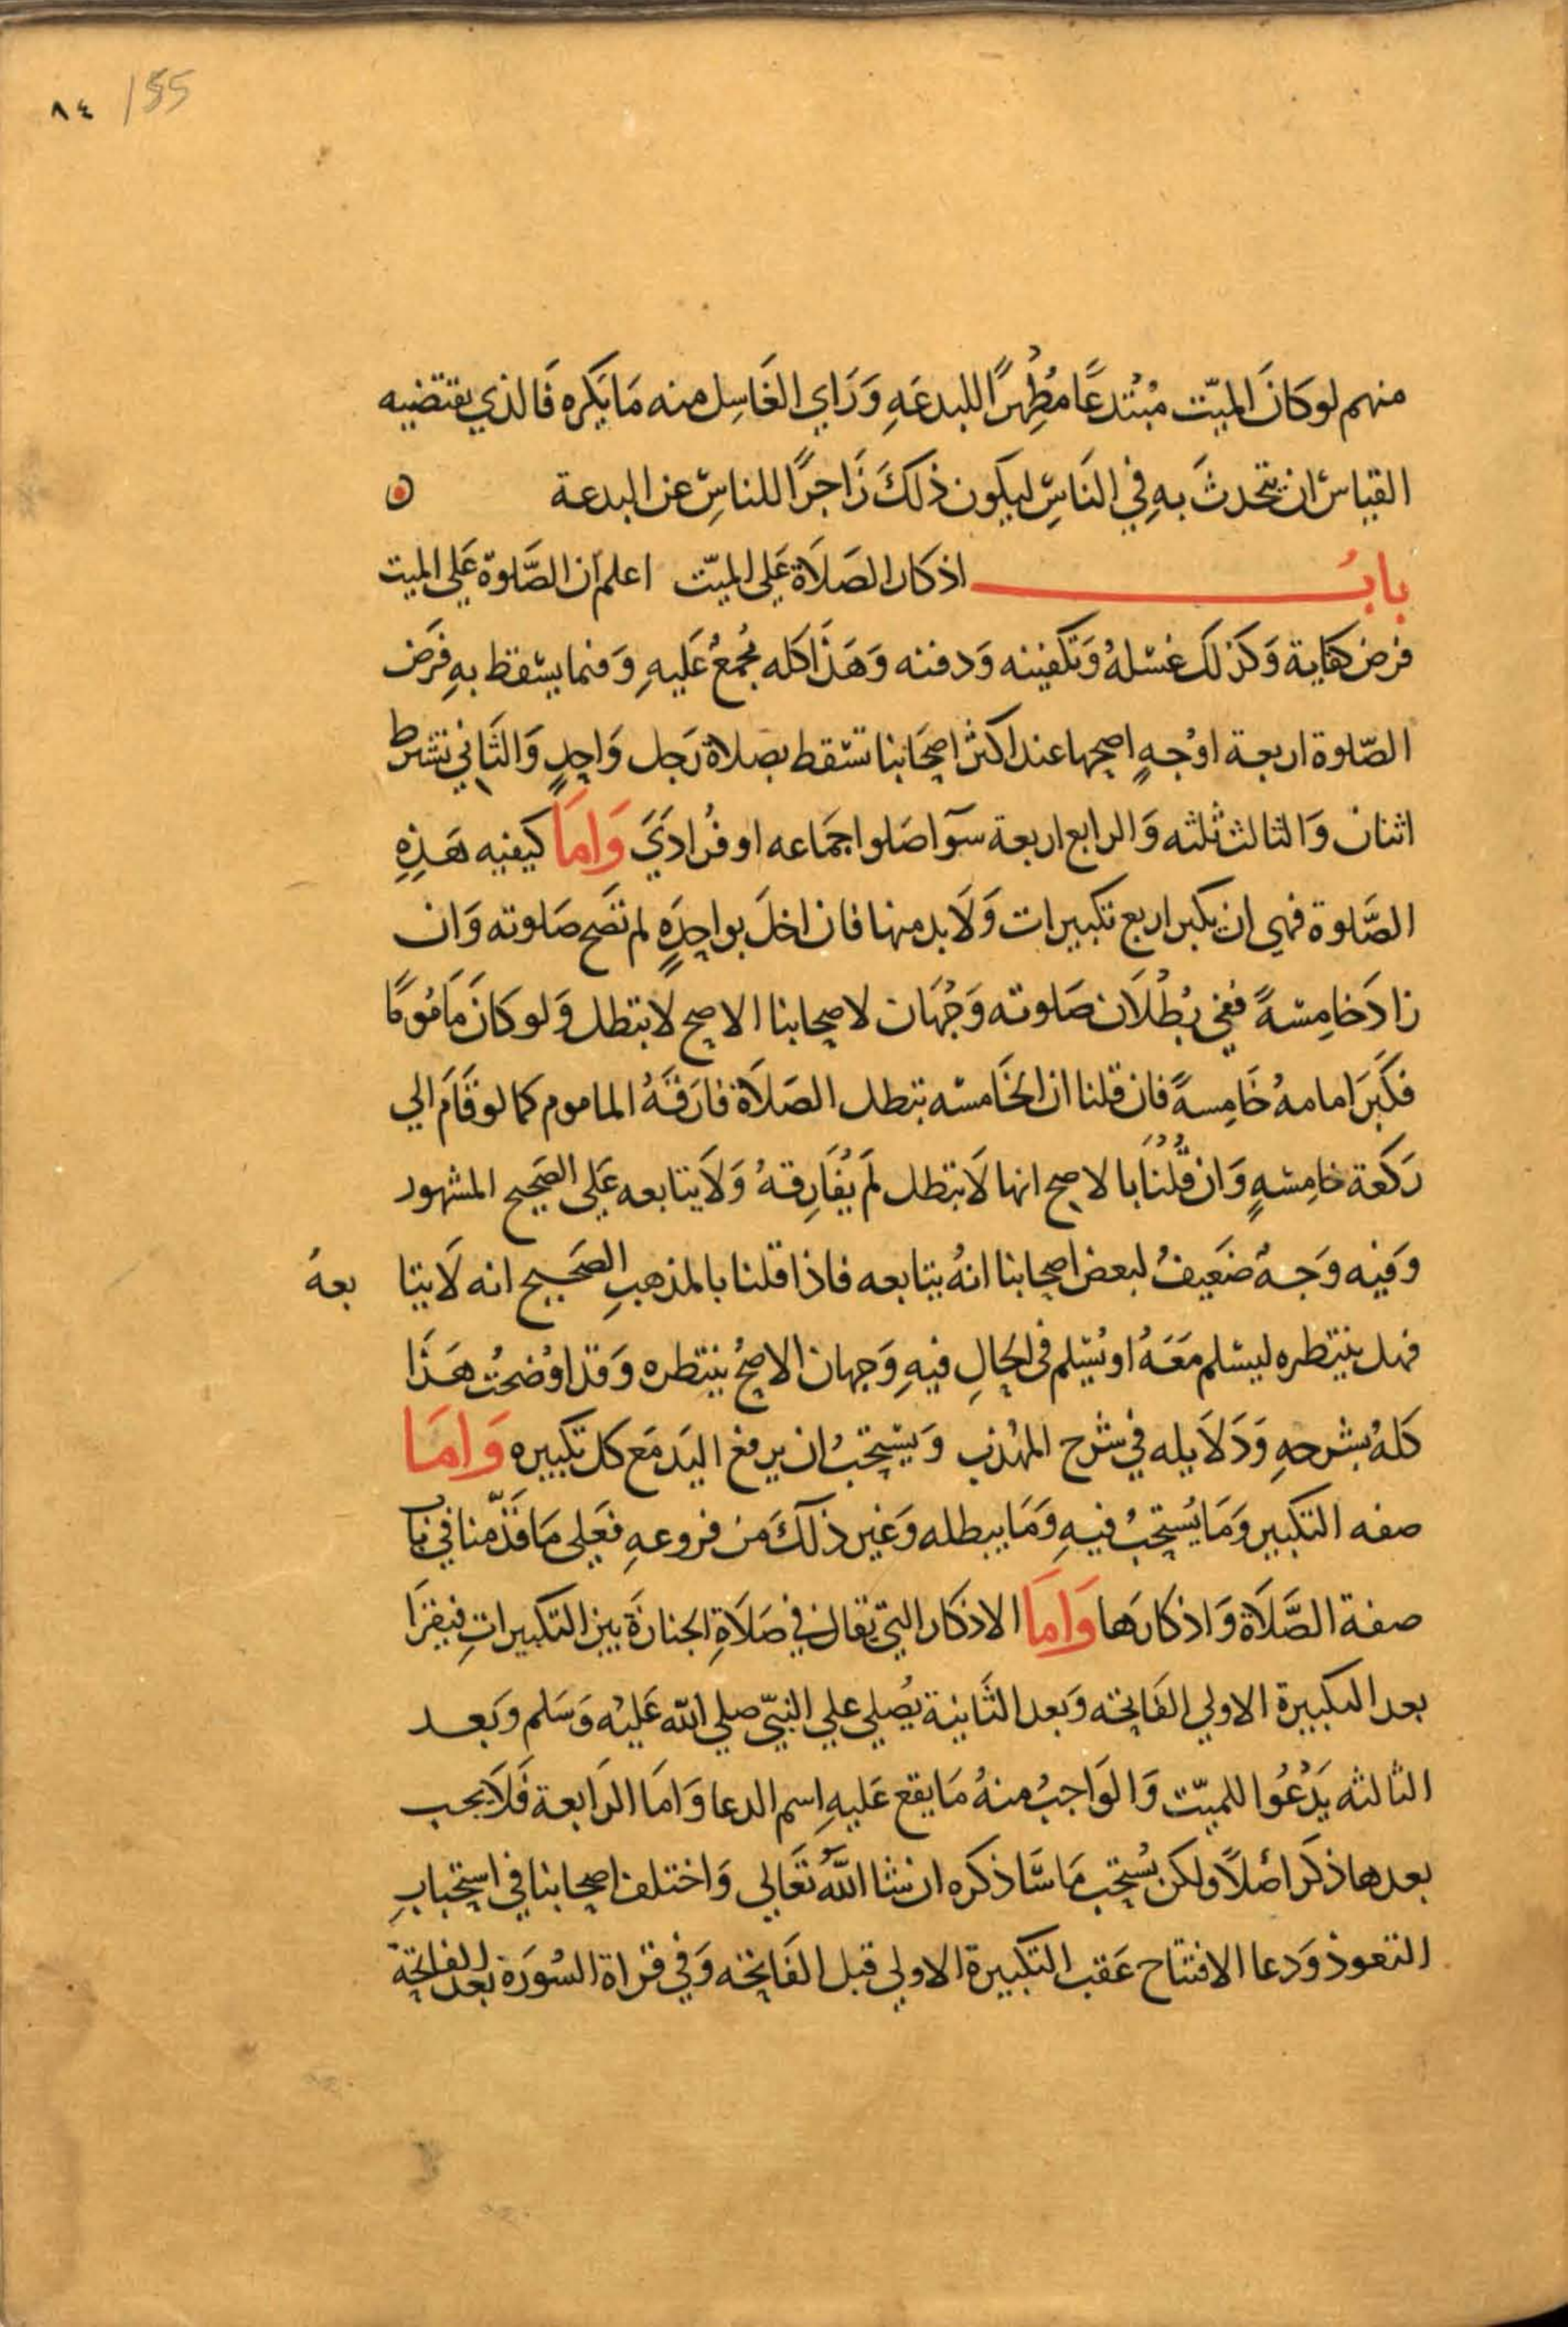 ٨٤ 155
منهم لو كَانَ الميّت مُبْتَدعًا مُظِهرًا للبدعَهِ وَرَاي الغَاسِل منه مَا يَكره فَالذي يقتضيه
القياسُ ان يتحدثَ بهِ في النَاسِ ليكون ذلكَ زَاجرًا للناسِ عن البدعة
بابُ اذكار الصَلاَة عَلي الميّت اعلم اَن الصَّلوة عَلي الميت
فرض كفاية وَكَذلكَ غسْلهُ وَتكفينه وَدفنه وَهَذَا كله مُجمعُ عَليهِ وَفيما يسْقط بهِ فَرَض
الصّلوة اربعة اوْجُهٍ اصحها عند اكثر اصحَابنا تسْقط بصلاة رَجل وَاحدٍ وَالثَاني تشرط
اثنان وَالثالث ثلثه وَالرابع اربعة سوَآ صَلوا جمَاعه او فُرَاديَ وَامَا كيفيه هَذِهِ
الصَّلوة فهي ان يكبر اربع تكبيرات وَلاَ بد منها فان اخلَ بواحدَهٍ لم تصَح صَلوته وَان
زادَ خامِسْهً ففي بُطْلاَن صَلوته وَجْهَان لاصحابنا الاصح لا تبطل وَلو كانَ مَامُومًا
فكبَرَ امامهُ خَامِسهً فان قلنا ان الخَامسْه تبطل الصَلاَة فارَقَهُ الماموم كما لو قَامَ الي
رَكعَة خامِسْهٍ وَان قُلْنَا بالاصح انها لاَ تبطل لَم يُفَارِقهُ وَلاَ يتابعه عَلي الصَحيح المشهور
وَفيه وَجهُ ضَعَيفُ لبعض اصحابنا انهُ يتابعه فاذا قلنا بالمذهبِ الصَحيح انه لاَ يتا بعهُ
فهل ينتظره ليسْلم مَعَهُ او يُسَلم في الحالِ فيهِ وَجهان الاصحُ ينتظره وَقد اوْضحتُ هَذَا
كلهُ بشرحهِ وَدَلاَيله في شرح المهذب وَيسْتحَبُ ان يرفع اليَد مَع كل تكبيره وَامَا
صفه التكبير وَمَا يُستحبُ فيهِ وَمَا يبطله وَغير ذلكَ مَن فروعهِ فعَلي مَا قَدّمنا في باب
صفة الصَّلاَة وَاذكارهَا وَامَا الاذكار التي تقال في صَلاَةِ الجنازَة بين التكبيراتِ فيقرَا
بعد التكبيرة الاولي الفَاتحَه وَبعد الثَانية يُصَلي علي النبيّ صلي الله عَليْه وَسَلم وبَعد
الثالثه يَدْعُوا للميّت وَالوَاجبُ منهُ مَا يقع عَليهِ اِسم الدعا وَامَا الرَابعة فَلاَ يجب
بعدها ذكر اصْلاً ولكن يُستحب مَا سَا ذكره ان شا اللهُ تعَالي وَاختلف اصحابنا في استحبابِ
التعوذ وَدعا الافتتاح عَقب التكبيرة الاولي قبل الفَاتحه وَفي قراة السُورَة بعد الفاتحة